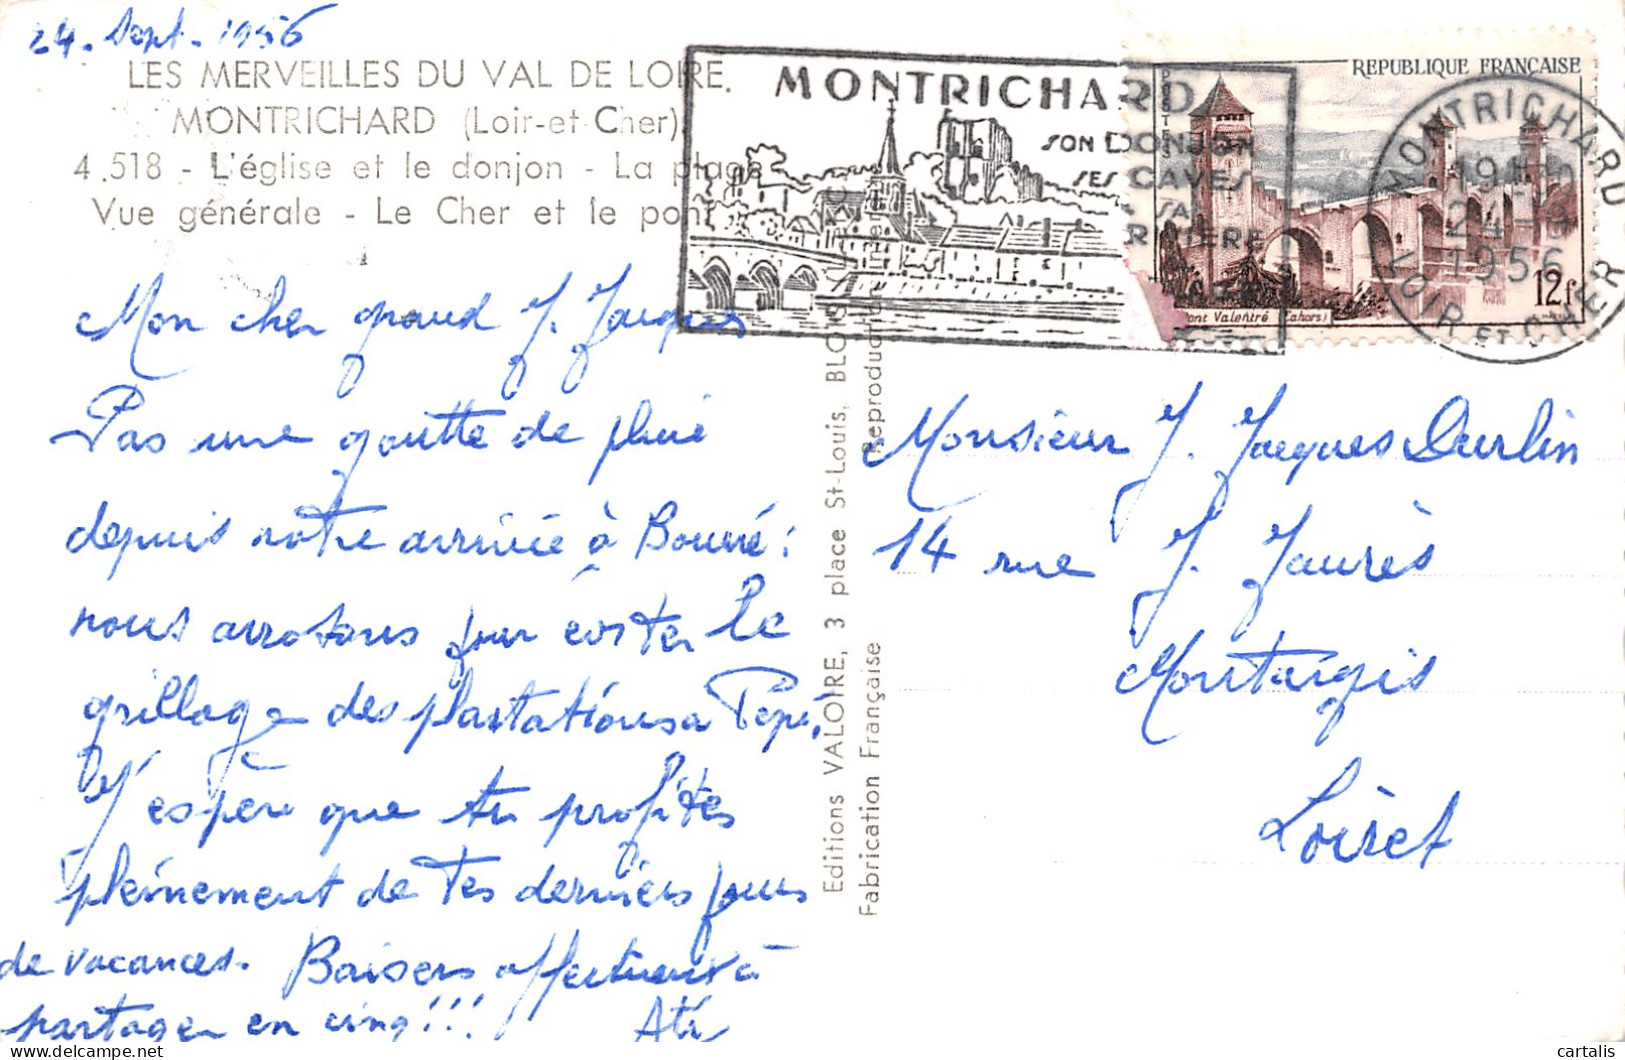 24. Sept. 1956
LES MERVEILLES DU VAL DE LOIRE.
MONTRICHARD (Loir-et-Cher)
4.518 - L'église et le donjon - La plage
Vue générale - Le Cher et le pont
Mon cher grand J. Jacques
Pas une goutte de pluie
depuis notre arrivée à Bourré :
nous arrosons pour éviter le
grillage des plantations à Pépé.
J'espère que tu profites
pleinement de tes derniers jours
de vacances. Baisers affectueux à
partager en cinq !!!
Editions VALOIRE, 3 place St-Louis, BLOIS
Reproduction
Fabrication Française
MONTRICHARD
SON DONJON
SES CAVES
SA
RIVIERE
POSTES
REPUBLIQUE FRANÇAISE
12f
Pont Valentré (Cahors)
MONTRICHARD
24-9
1956
LOIR ET CHER
Monsieur J. Jacques Durlin
14 rue J. Jaurès
Montargis
Loiret
cartalis